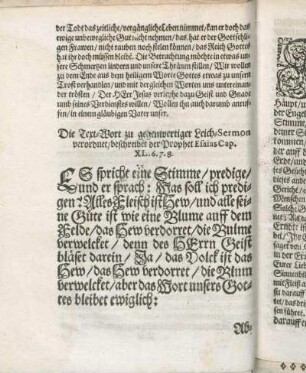 der Todt das zeitliche/ vergängliche Leben nimmet/ kan er doch das
ewige unbewegliche Gut nicht nehmen/ das hat er der Gottseli-
gen Frawen/ nicht rauben noch stelen können/ das Reich Gottes
hat ihr doch müssen bleibē. Die Betrachtung möchte in etwas un-
sere Schmertzen lindern und unsere Thränen stillen/ Wir wollen
zu dem Ende aus dem heiligem Worte Gottes etwas zu unsern
Trost vorhandlen/ und mit dergleichen Worten uns untereinan-
der trösten/ Der HErr Jesus verleihe dazu Geist und Gnad
umb seines Verdienstes willen/ Wollen ihn auch darumb anruf-
fen/ in einem gläubigen Vater unser.
Die Text/Wort zu gegenwertiger Leich-Sermon
verordnet/ beschreibet der Prophet Esaias Cap.
XL. 6. 7. 8.
ES spricht eine Stimme/ predige/
und er sprach: Was soll ich predi-
gen? Alles Fleisch ist Hew/ und alle sei-
ne Güte ist wie eine Blume auff dem
Felde/ das Hew verdorret/ die Blume
verwelcket/ denn des HErrn Geist
bläset darein/ Ja/ das Volck ist das
Hew/ das Hew verdorret/ die Blum
verwelcket/ aber das Wort unsers Got-
tes bleibet ewiglich:
Ab-